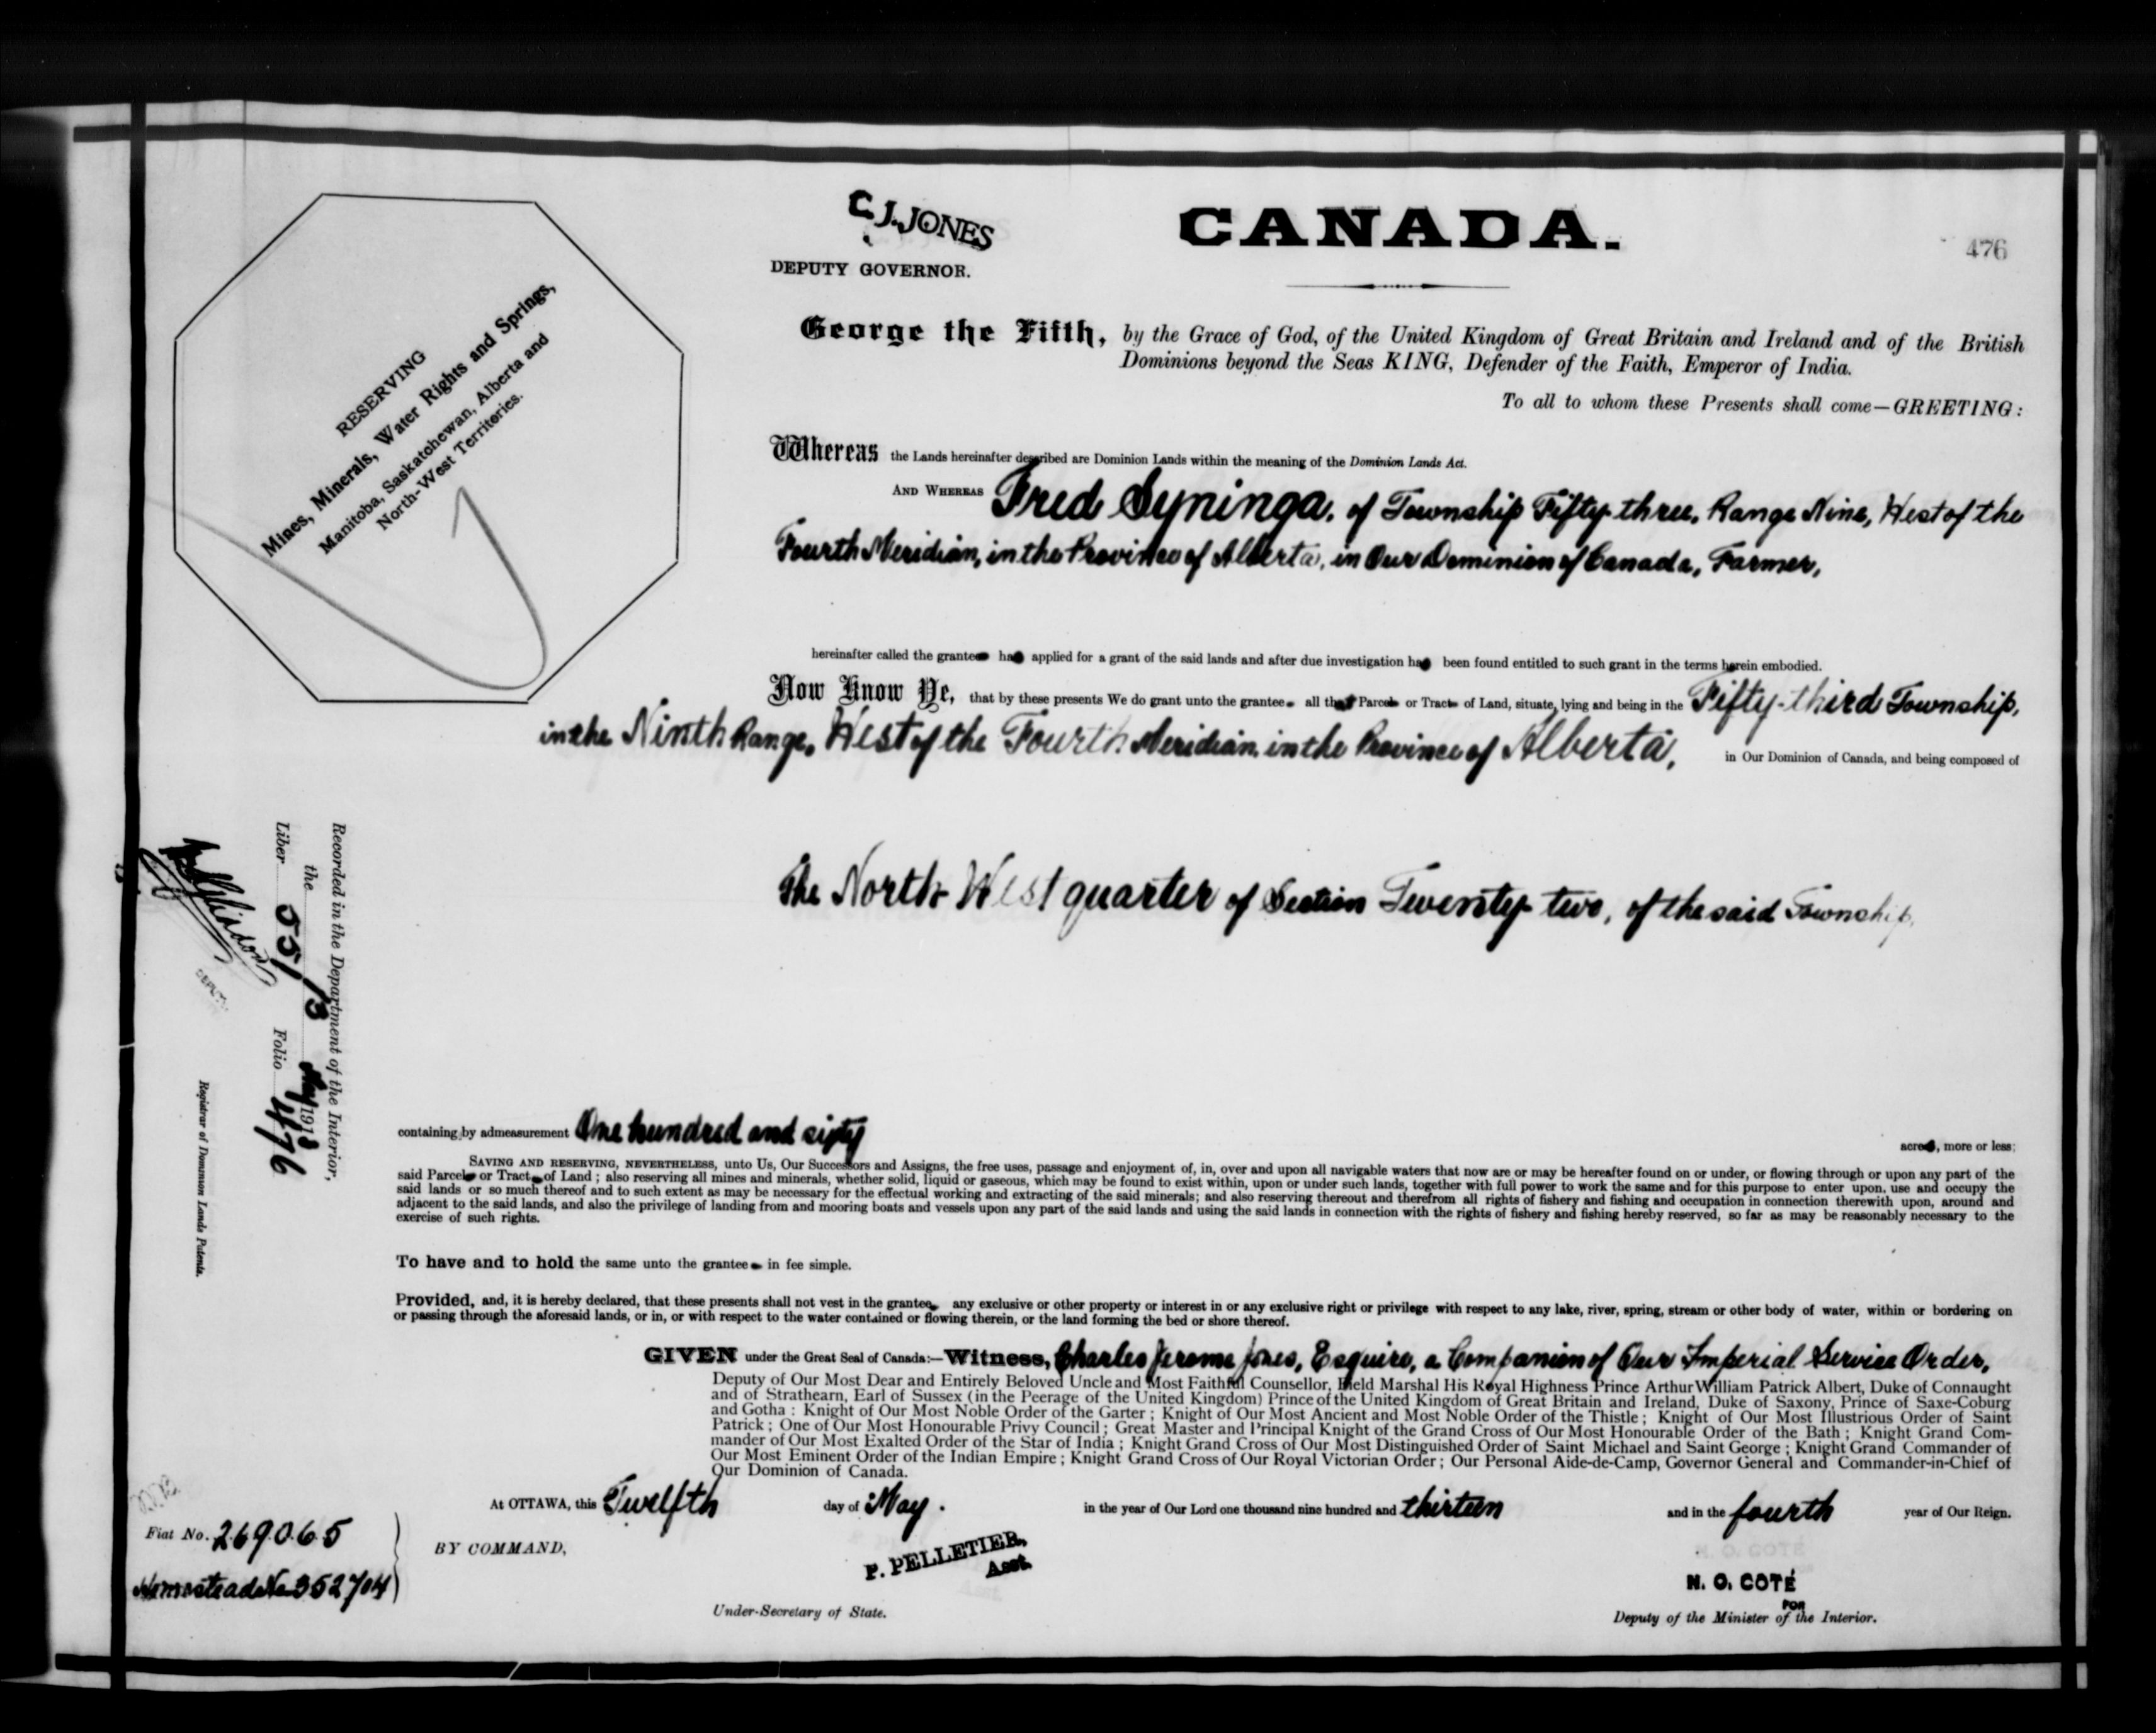 C. J. JONES
DEPUTY GOVERNOR.
CANADA.
476
RESERVING
Mines, Minerals, Water Rights and Springs,
Manitoba, Saskatchewan, Alberta and
North-West Territories.
George the Fifth, by the Grace of God, of the United Kingdom of Great Britain and Ireland and of the British
Dominions beyond the Seas KING, Defender of the Faith, Emperor of India.
To all to whom these Presents shall come—GREETING:
Whereas the Lands hereinafter described are Dominion Lands within the meaning of the Dominion Lands Act.
AND WHEREAS Fred Syninga, of Township Fifty-three, Range Nine, West of the
Fourth Meridian, in the Province of Alberta, in Our Dominion of Canada, Farmer,
hereinafter called the grantee has applied for a grant of the said lands and after due investigation has been found entitled to such grant in the terms herein embodied.
Now Know Ye, that by these presents We do grant unto the grantee all that Parcel or Tract of Land, situate, lying and being in the Fifty-third Township,
in the Ninth Range, West of the Fourth Meridian, in the Province of Alberta, in Our Dominion of Canada, and being composed of
The North West quarter of Section Twenty two, of the said Township,
Recorded in the Department of the Interior,
the 13 May 1913
Liber 550 Folio 476
DEPUTY
Registrar of Dominion Lands Patents.
containing by admeasurement One hundred and sixty acres, more or less:
SAVING AND RESERVING, NEVERTHELESS, unto Us, Our Successors and Assigns, the free uses, passage and enjoyment of, in, over and upon all navigable waters that now are or may be hereafter found on or under, or flowing through or upon any part of the
said Parcel or Tract of Land; also reserving all mines and minerals, whether solid, liquid or gaseous, which may be found to exist within, upon or under such lands, together with full power to work the same and for this purpose to enter upon, use and occupy the
said lands or so much thereof and to such extent as may be necessary for the effectual working and extracting of the said minerals; and also reserving thereout and therefrom all rights of fishery and fishing and occupation in connection therewith upon, around and
adjacent to the said lands, and also the privilege of landing from and mooring boats and vessels upon any part of the said lands and using the said lands in connection with the rights of fishery and fishing hereby reserved, so far as may be reasonably necessary to the
exercise of such rights.
To have and to hold the same unto the grantee in fee simple.
Provided, and, it is hereby declared, that these presents shall not vest in the grantee any exclusive or other property or interest in or any exclusive right or privilege with respect to any lake, river, spring, stream or other body of water, within or bordering on
or passing through the aforesaid lands, or in, or with respect to the water contained or flowing therein, or the land forming the bed or shore thereof.
GIVEN under the Great Seal of Canada:—Witness, Charles Jerome Jones, Esquire, a Companion of Our Imperial Service Order,
Deputy of Our Most Dear and Entirely Beloved Uncle and Most Faithful Counsellor, Field Marshal His Royal Highness Prince Arthur William Patrick Albert, Duke of Connaught
and of Strathearn, Earl of Sussex (in the Peerage of the United Kingdom) Prince of the United Kingdom of Great Britain and Ireland, Duke of Saxony, Prince of Saxe-Coburg
and Gotha: Knight of Our Most Noble Order of the Garter; Knight of Our Most Ancient and Most Noble Order of the Thistle; Knight of Our Most Illustrious Order of Saint
Patrick; One of Our Most Honourable Privy Council; Great Master and Principal Knight of the Grand Cross of Our Most Honourable Order of the Bath; Knight Grand Com-
mander of Our Most Exalted Order of the Star of India; Knight Grand Cross of Our Most Distinguished Order of Saint Michael and Saint George; Knight Grand Commander of
Our Most Eminent Order of the Indian Empire; Knight Grand Cross of Our Royal Victorian Order; Our Personal Aide-de-Camp, Governor General and Commander-in-Chief of
Our Dominion of Canada.
At OTTAWA, this Twelfth day of May. in the year of Our Lord one thousand nine hundred and thirteen and in the fourth year of Our Reign.
Fiat No. 269065
Homestead No 352704
BY COMMAND,
P. PELLETIER,
Asst.
Under-Secretary of State.
N. O. COTÉ
FOR
Deputy of the Minister of the Interior.